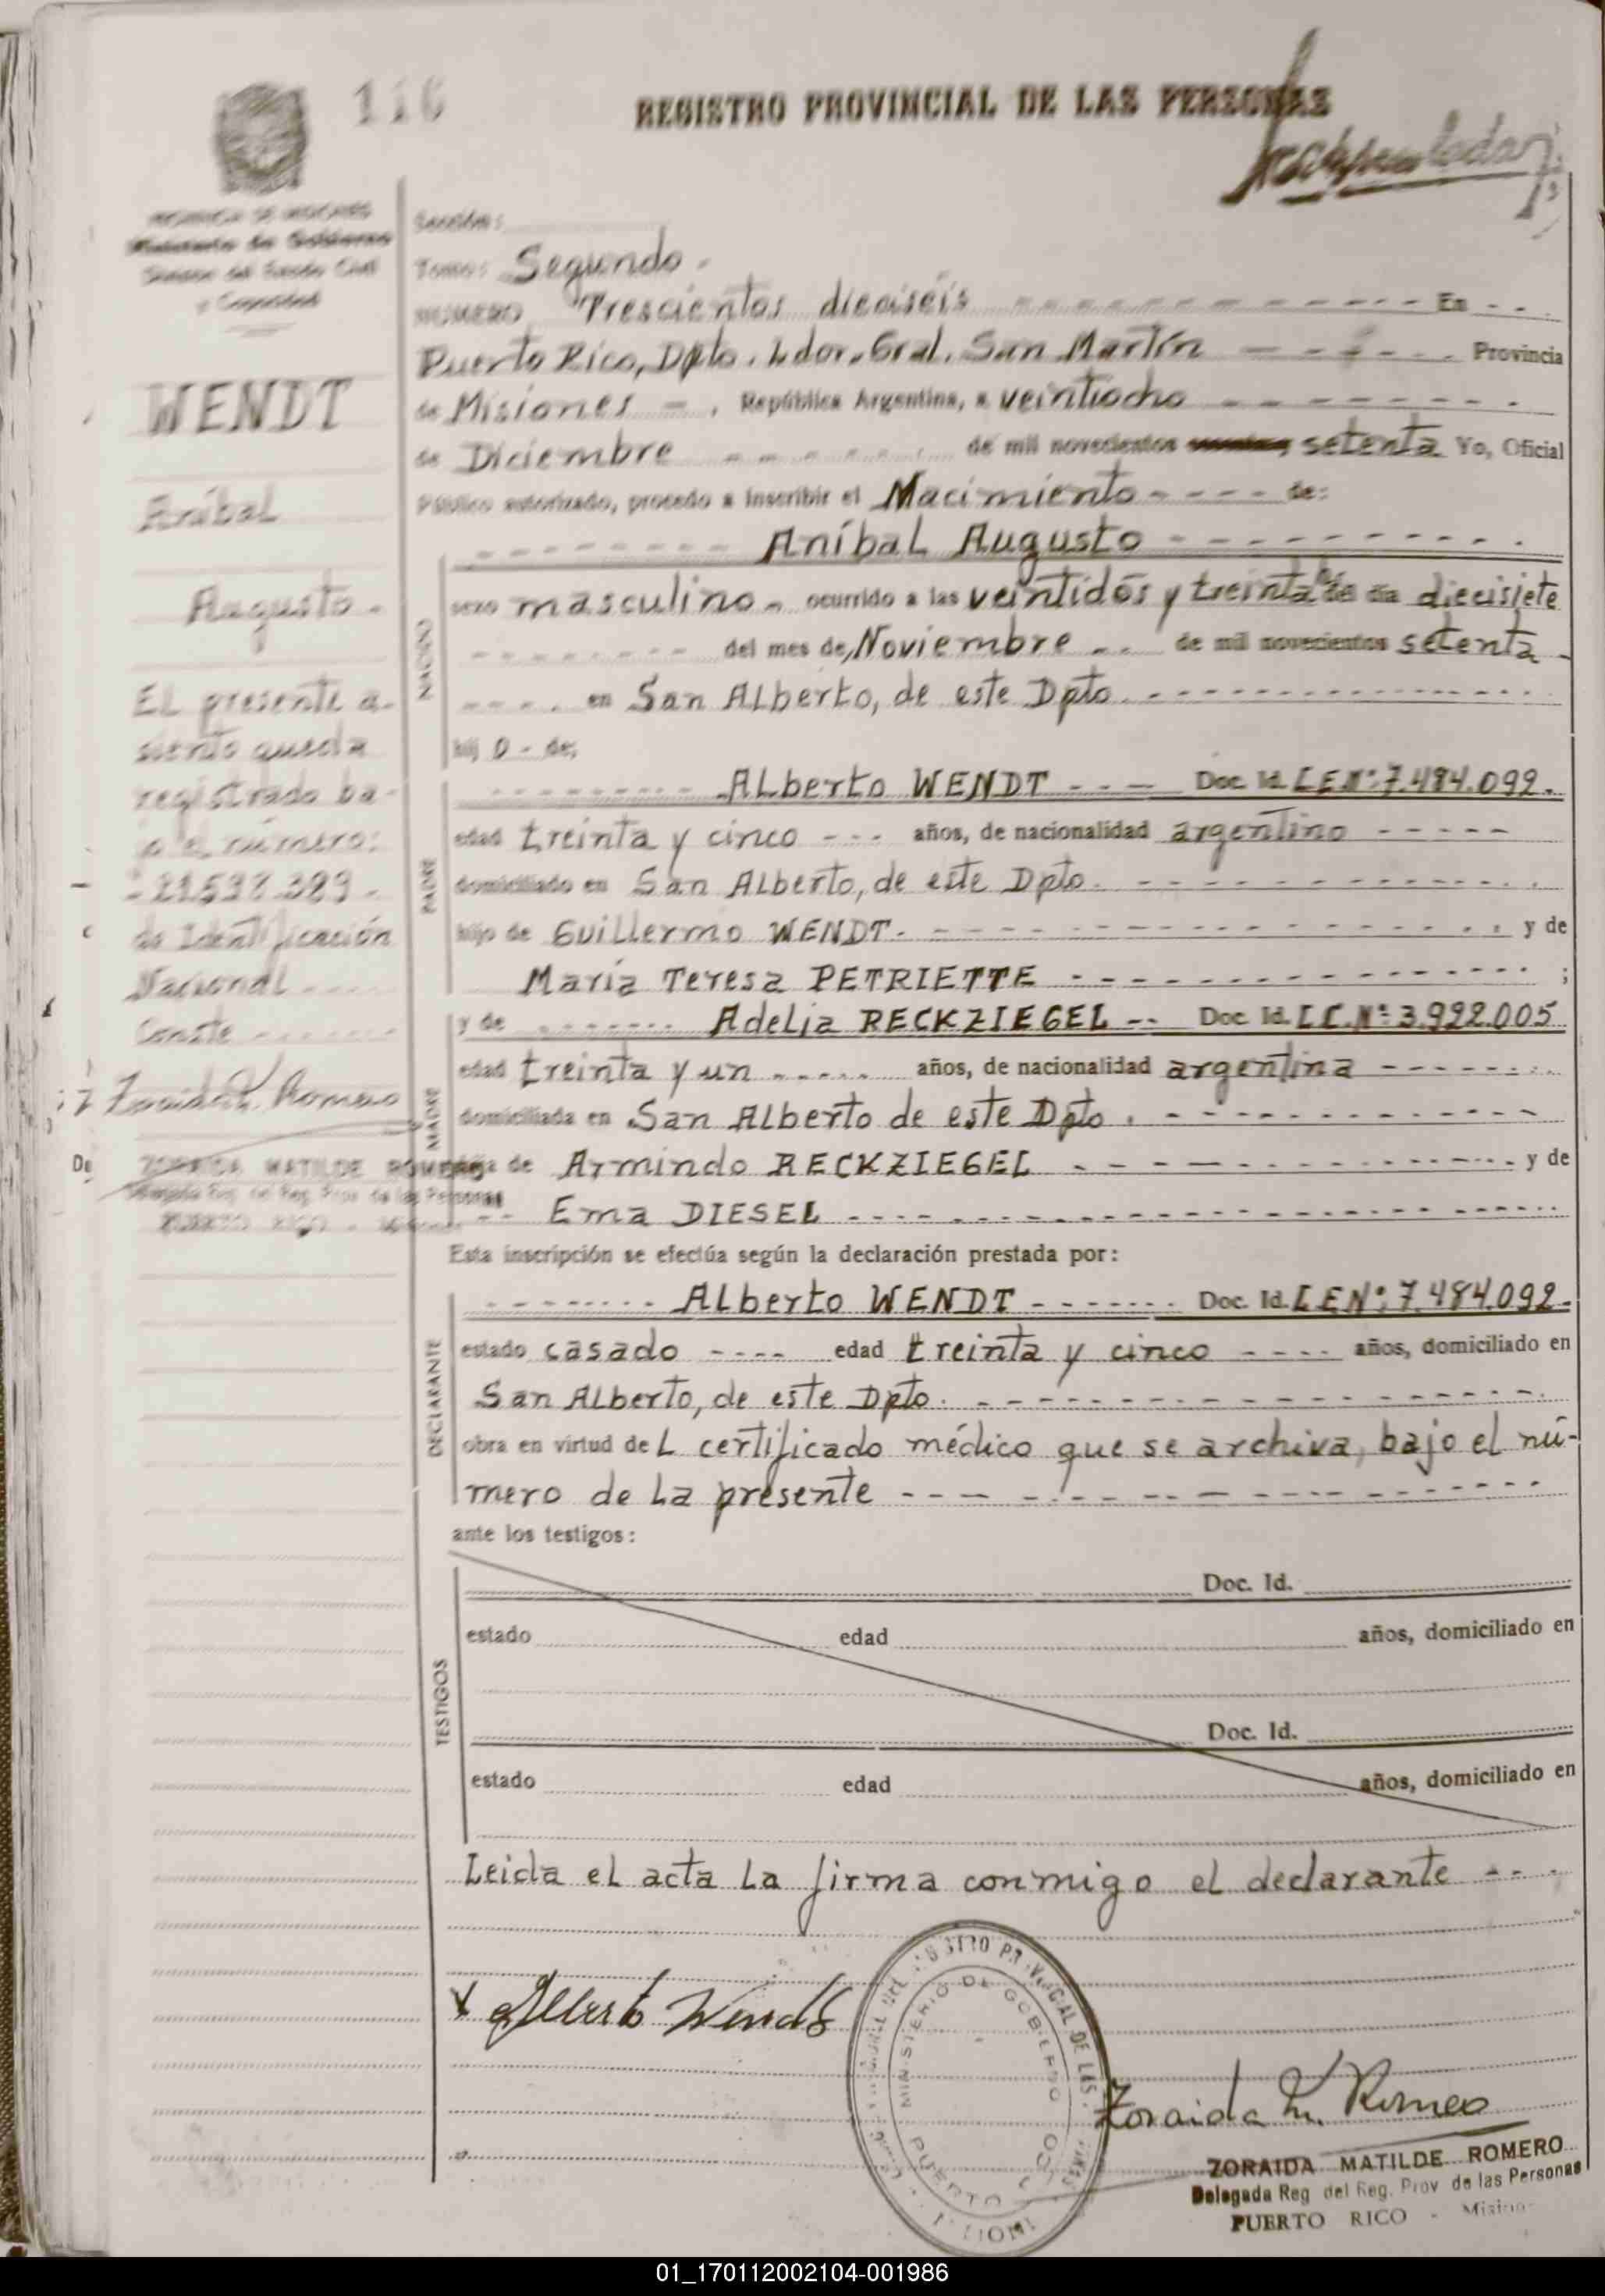 116
REGISTRO PROVINCIAL DE LAS PERSONAS
PROVINCIA DE MISIONES
Ministerio de Gobierno
División del Estado Civil
y Capacidad
Sección:
Tomo: Segundo.
NUMERO Trescientos dieciséis En
Puerto Rico, Dpto. Ldor. Gral. San Martín Provincia
de Misiones, República Argentina, a veintiocho
de Diciembre de mil novecientos setenta Yo, Oficial
Público autorizado, procedo a inscribir el Nacimiento de:
Aníbal Augusto
NACIDO
sexo masculino ocurrido a las veintidós y treinta hs del día diecisiete
del mes de Noviembre de mil novecientos setenta
en San Alberto, de este Dpto.
hij o de;
PADRE
Alberto WENDT Doc. Id. L E Nº: 7.484.092.
edad treinta y cinco años, de nacionalidad argentino
domiciliado en San Alberto, de este Dpto.
hijo de Guillermo WENDT y de
María Teresa PETRIETTE ;
MADRE
y de Adelia RECKZIEGEL Doc. Id. L C. Nº: 3.922.005
edad treinta y un años, de nacionalidad argentina
domiciliada en San Alberto de este Dpto.
hija de Armindo RECKZIEGEL y de
Ema DIESEL
Esta inscripción se efectúa según la declaración prestada por:
DECLARANTE
Alberto WENDT Doc. Id. L E Nº: 7.484.092.
estado casado edad treinta y cinco años, domiciliado en
San Alberto, de este Dpto.
obra en virtud de L certificado médico que se archiva, bajo el nú-
mero de la presente
ante los testigos:
TESTIGOS
Doc. Id.
estado edad años, domiciliado en
Doc. Id.
estado edad años, domiciliado en
Leida el acta la firma conmigo el declarante
Alberto Wendt
Zoraida M. Romero
ZORAIDA MATILDE ROMERO
Delegada Reg del Reg. Prov de las Personas
PUERTO RICO - Misiones
MINISTERIO DE GOBIERNO
PUERTO RICO
WENDT
Aníbal
Augusto
El presente a-
siento queda
registrado ba-
jo el número:
de Identificación
Nacional
Conste
Zoraida M. Romero
ZORAIDA MATILDE ROMERO
Delegada Reg. del Reg. Prov de las Personas
PUERTO RICO -
01_170112002104-001986